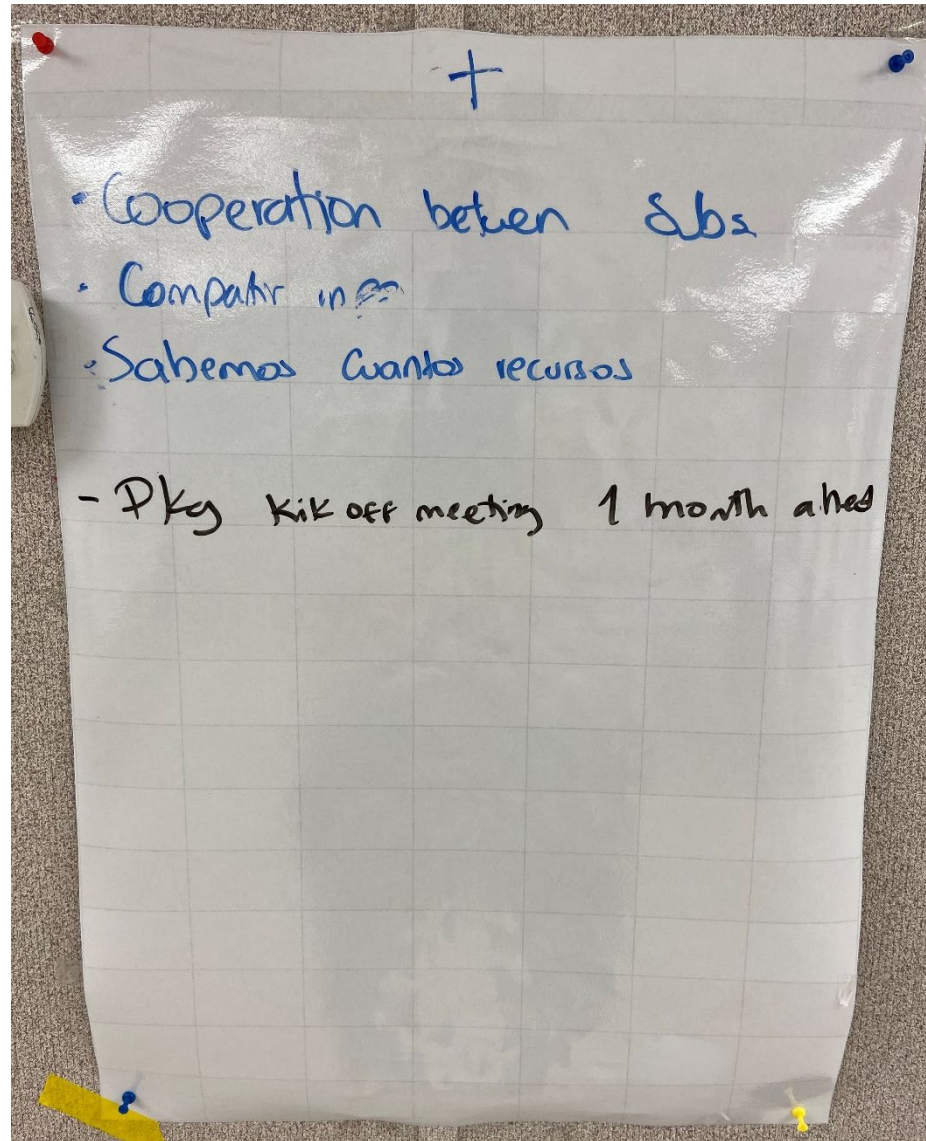 +
· Cooperation betwen Subs
· Compatir
· Sabemos Cuantos recursos
- Pkg Kik off meeting 1 month ahed